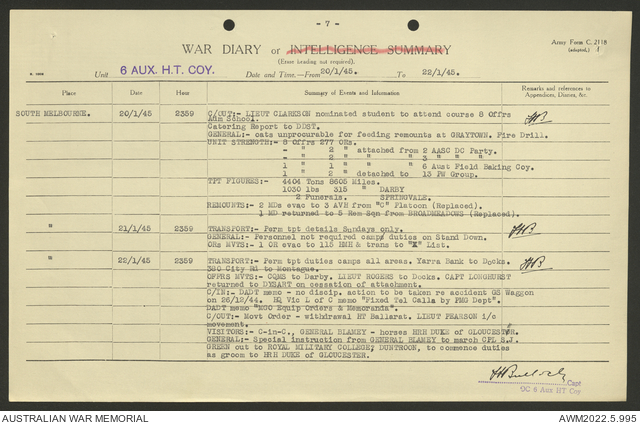 - 7 -
WAR DIARY or INTELLIGENCE SUMMARY
(Erase heading not required).
Army Form C. 2118
(adopted)
Unit 6 AUX. H.T. COY. Date and Time.—From 20/1/45. To 22/1/45.
Place Date Hour Summary of Events and Information Remarks and references to Appendices, Diaries, &c.
SOUTH MELBOURNE. 20/1/45 2359 C/OUT:- LIEUT CLARESON nominated student to attend course 8 Offrs
Adm School.
Catering Report to DDST.
GENERAL:- oats unprocurable for feeding remounts at GRAYTOWN. Fire Drill.
UNIT STRENGTH:- 8 Offrs 277 ORs.
- " 2 " attached from 2 AASC DC Party.
- " 2 " " " 3 " " "
1 " 1 " " " 6 Aust Field Baking Coy.
1 " 2 " " to 13 PW Group.
TPT FIGURES:- 4404 Tons 8605 Miles.
1030 lbs 315 " DARBY
2 Funerals. SPRINGVALE.
REMOUNTS:- 2 HDs evac to 3 AVH from "C" Platoon (Replaced).
1 HD returned to 5 Rem Sqn from BROADMEADOWS (Replaced).
" 21/1/45 2359 TRANSPORT:- Perm tpt details Sundays only.
GENERAL:- Personnel not required camp duties on Stand Down.
ORs MVTS:- 1 OR evac to 115 HMH & trans to "X" List.
" 22/1/45 2359 TRANSPORT:- Perm tpt duties camps all areas. Yarra Bank to Docks.
380 City Rd to Montague.
OFFRS MVTS:- CQMS to Darby. LIEUT ROGERS to Docks. CAPT LONGHURST
returned to DYSART on cessation of attachment.
C/IN:- DADT memo - no discip. action to be taken re accident GS Waggon
on 26/12/44. HQ Vic L of C memo "Fixed Tel Calls by PMG Dept".
DADT memo "MGO Equip Orders & Memoranda".
C/OUT:- Movt Order - withdrawal HT Ballarat. LIEUT PEARSON i/c
movement.
VISITORS:- C-in-C., GENERAL BLAMEY - horses HRH DUKE of GLOUCESTER.
GENERAL:- Special instruction from GENERAL BLAMEY to march CPL S.J.
GREEN out to ROYAL MILITARY COLLEGE, DUNTROON, to commence duties
as groom to HRH DUKE of GLOUCESTER.
Capt
OC 6 Aux HT Coy
AUSTRALIAN WAR MEMORIAL
AWM2022.5.995